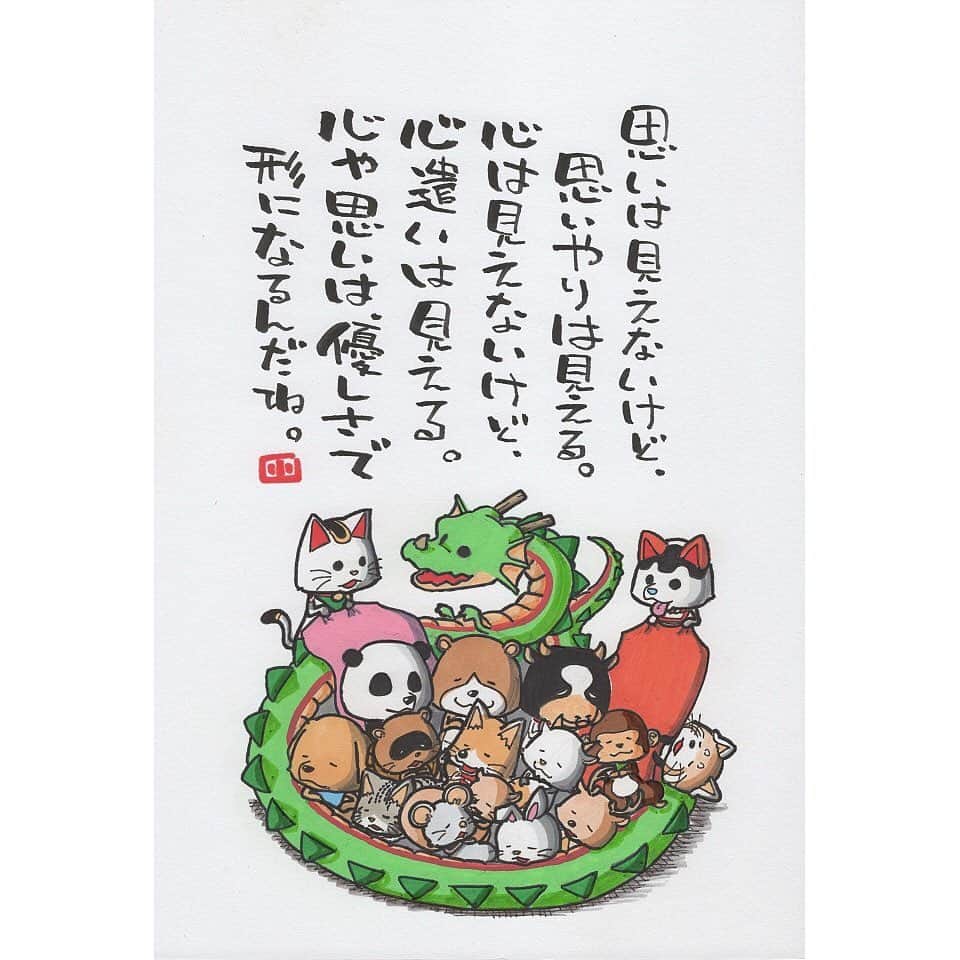 思いは見えないけど、
思いやりは見える。
心は見えないけど、
心遣いは見える。
心や思いは、優しさで
形になるんだね。